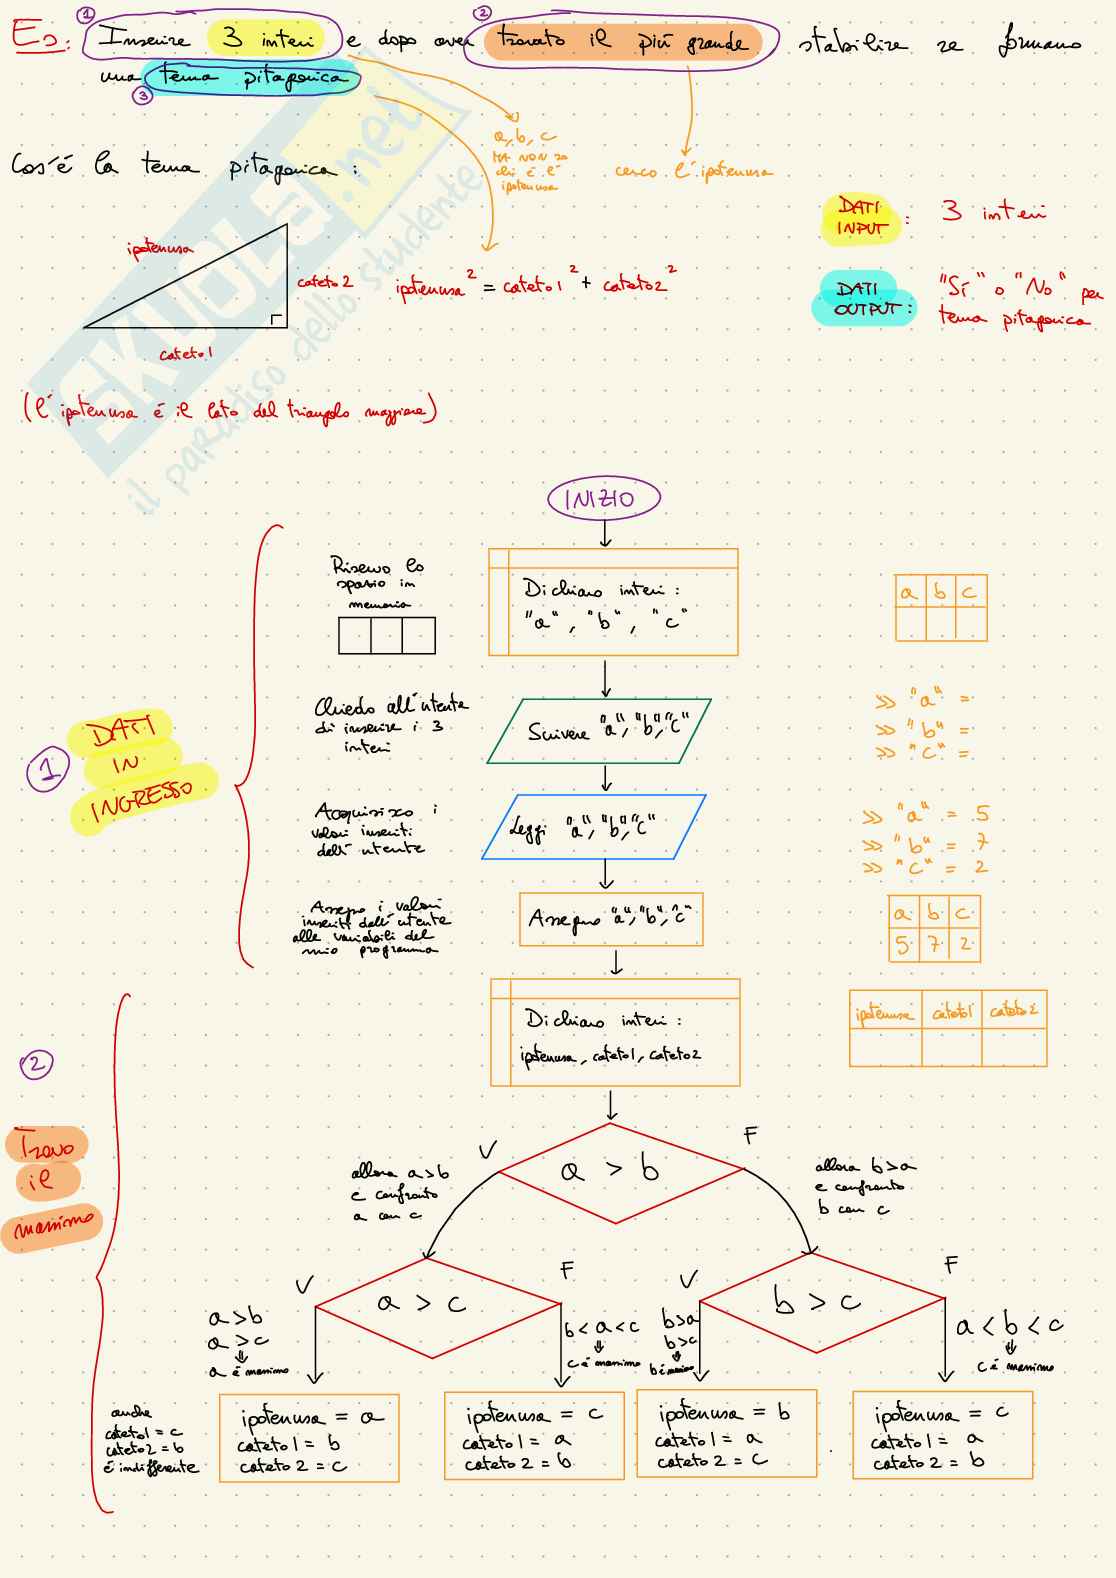 ① ②
Es: Inserire 3 interi e dopo aver trovato il più grande stabilire se formano
una terna pitagorica
③
a, b, c
MA NON so
chi è l'
ipotenusa
cerco l'ipotenusa
Cos'è la terna pitagorica :
DATI INPUT : 3 interi
ipotenusa
cateto 2
cateto 1
ipotenusa² = cateto1² + cateto2²
DATI OUTPUT : "Sì" o "No" per
terna pitagorica
(l'ipotenusa è il lato del triangolo maggiore)
SKUOLA.net
il paradiso dello studente
INIZIO
Riservo lo
spazio in
memoria
Dichiaro interi :
"a" , "b" , "c"
a b c
① DATI
IN
INGRESSO
Chiedo all'utente
di inserire i 3
interi
Scrivere "a", "b", "c"
>> "a" =
>> "b" =
>> "c" =
Acquisisco i
valori inseriti
dall'utente
Leggi "a", "b", "c"
>> "a" = 5
>> "b" = 7
>> "c" = 2
Assegno i valori
inseriti dall'utente
alle variabili del
mio programma
Assegno "a", "b", "c"
a b c
5 7 2
②
Trovo
il
massimo
Dichiaro interi :
ipotenusa, cateto1, cateto2
ipotenusa cateto1 cateto2
V F
a > b
allora a>b
e confronto
a con c
allora b>a
e confronto
b con c
V F
a > c
V F
b > c
a > b
a > c
⇓
a è massimo
b < a < c
⇓
c è massimo
b>a
b>c
⇓
b è massimo
a < b < c
⇓
c è massimo
anche
cateto1 = c
cateto2 = b
è indifferente
ipotenusa = a
cateto 1 = b
cateto 2 = c
ipotenusa = c
cateto 1 = a
cateto 2 = b
ipotenusa = b
cateto 1 = a
cateto 2 = c
ipotenusa = c
cateto 1 = a
cateto 2 = b